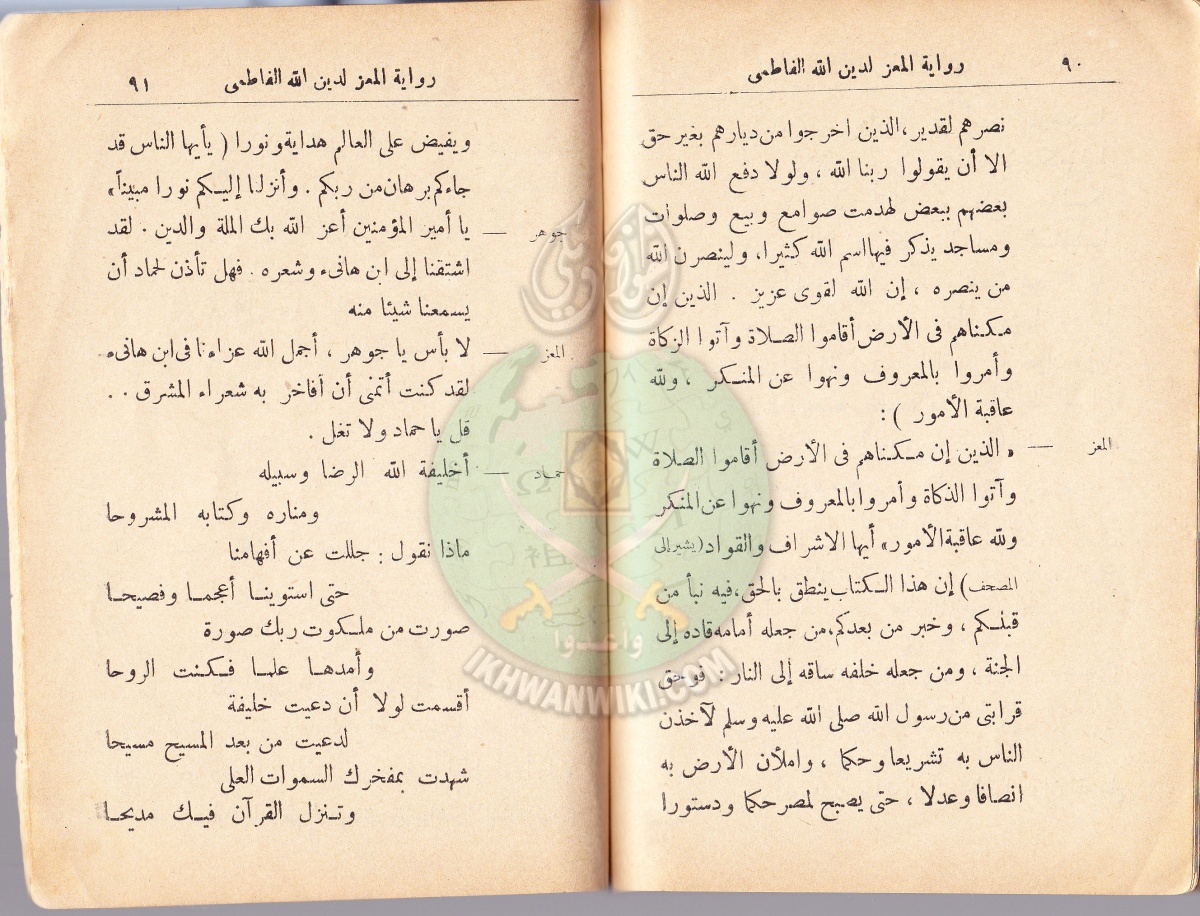 ٩٠
رواية المعز لدين الله الفاطمى
نصرهم لقدير، الذين أخرجوا من ديارهم بغير حق
الا أن يقولوا ربنا الله ، ولولا دفع الله الناس
بعضهم ببعض لهدمت صوامع وبيع وصلوات
ومساجد يذكر فيها اسم الله كثيرا، ولينصرن الله
من ينصره ، إن الله لقوى عزيز . الذين إن
مكناهم فى الأرض أقاموا الصلاة وآتوا الزكاة
وأمروا بالمعروف ونهوا عن المنكر ، ولله
عاقبة الأمور ) :
المعز — « الذين إن مكناهم فى الأرض أقاموا الصلاة
وآتوا الذكاة وأمروا بالمعروف ونهوا عن المنكر
ولله عاقبة الأمور» أيها الاشراف والقواد (يشير إلى
المصحف) إن هذا الكتاب ينطق بالحق، فيه نبأ من
قبلكم ، وخبر من بعدكم، من جعله أمامه قاده إلى
الجنة ، ومن جعله خلفه ساقه إلى النار : فوحق
قرابتى من رسول الله صلى الله عليه وسلم لآخذن
الناس به تشريعا وحكما ، واملأن الأرض به
انصافا وعدلا ، حتى يصبح لمصر حكما ودستورا
رواية المعز لدين الله الفاطمى
٩١
ويفيض على العالم هداية ونورا ( يأيها الناس قد
جاءكم برهان من ربكم . وأنزلنا إليكم نورا مبيناً»
جوهر — يا أمير المؤمنين أعز الله بك الملة والدين . لقد
اشتقنا إلى ابن هانىء وشعره . فهل تأذن لحماد أن
يسمعنا شيئا منه
المعز — لا بأس يا جوهر ، أجمل الله عزاءنا فى ابن هانىء
لقد كنت أتمنى أن أفاخر به شعراء المشرق . .
قل يا حماد ولا تغل .
حماد — أخليفة الله الرضا وسبيله
ومناره وكتابه المشروحا
ماذا نقول : جللت عن أفهامنا
حتى استوينا أعجما وفصيحا
صورت من ملكوت ربك صورة
وأمدها علما فكنت الروحا
أقسمت لولا أن دعيت خليفة
لدعيت من بعد المسيح مسيحا
شهدت بمفخرك السموات العلى
وتنزل القرآن فيك مديحا
وأعدوا
IKHWANWIKI.COM